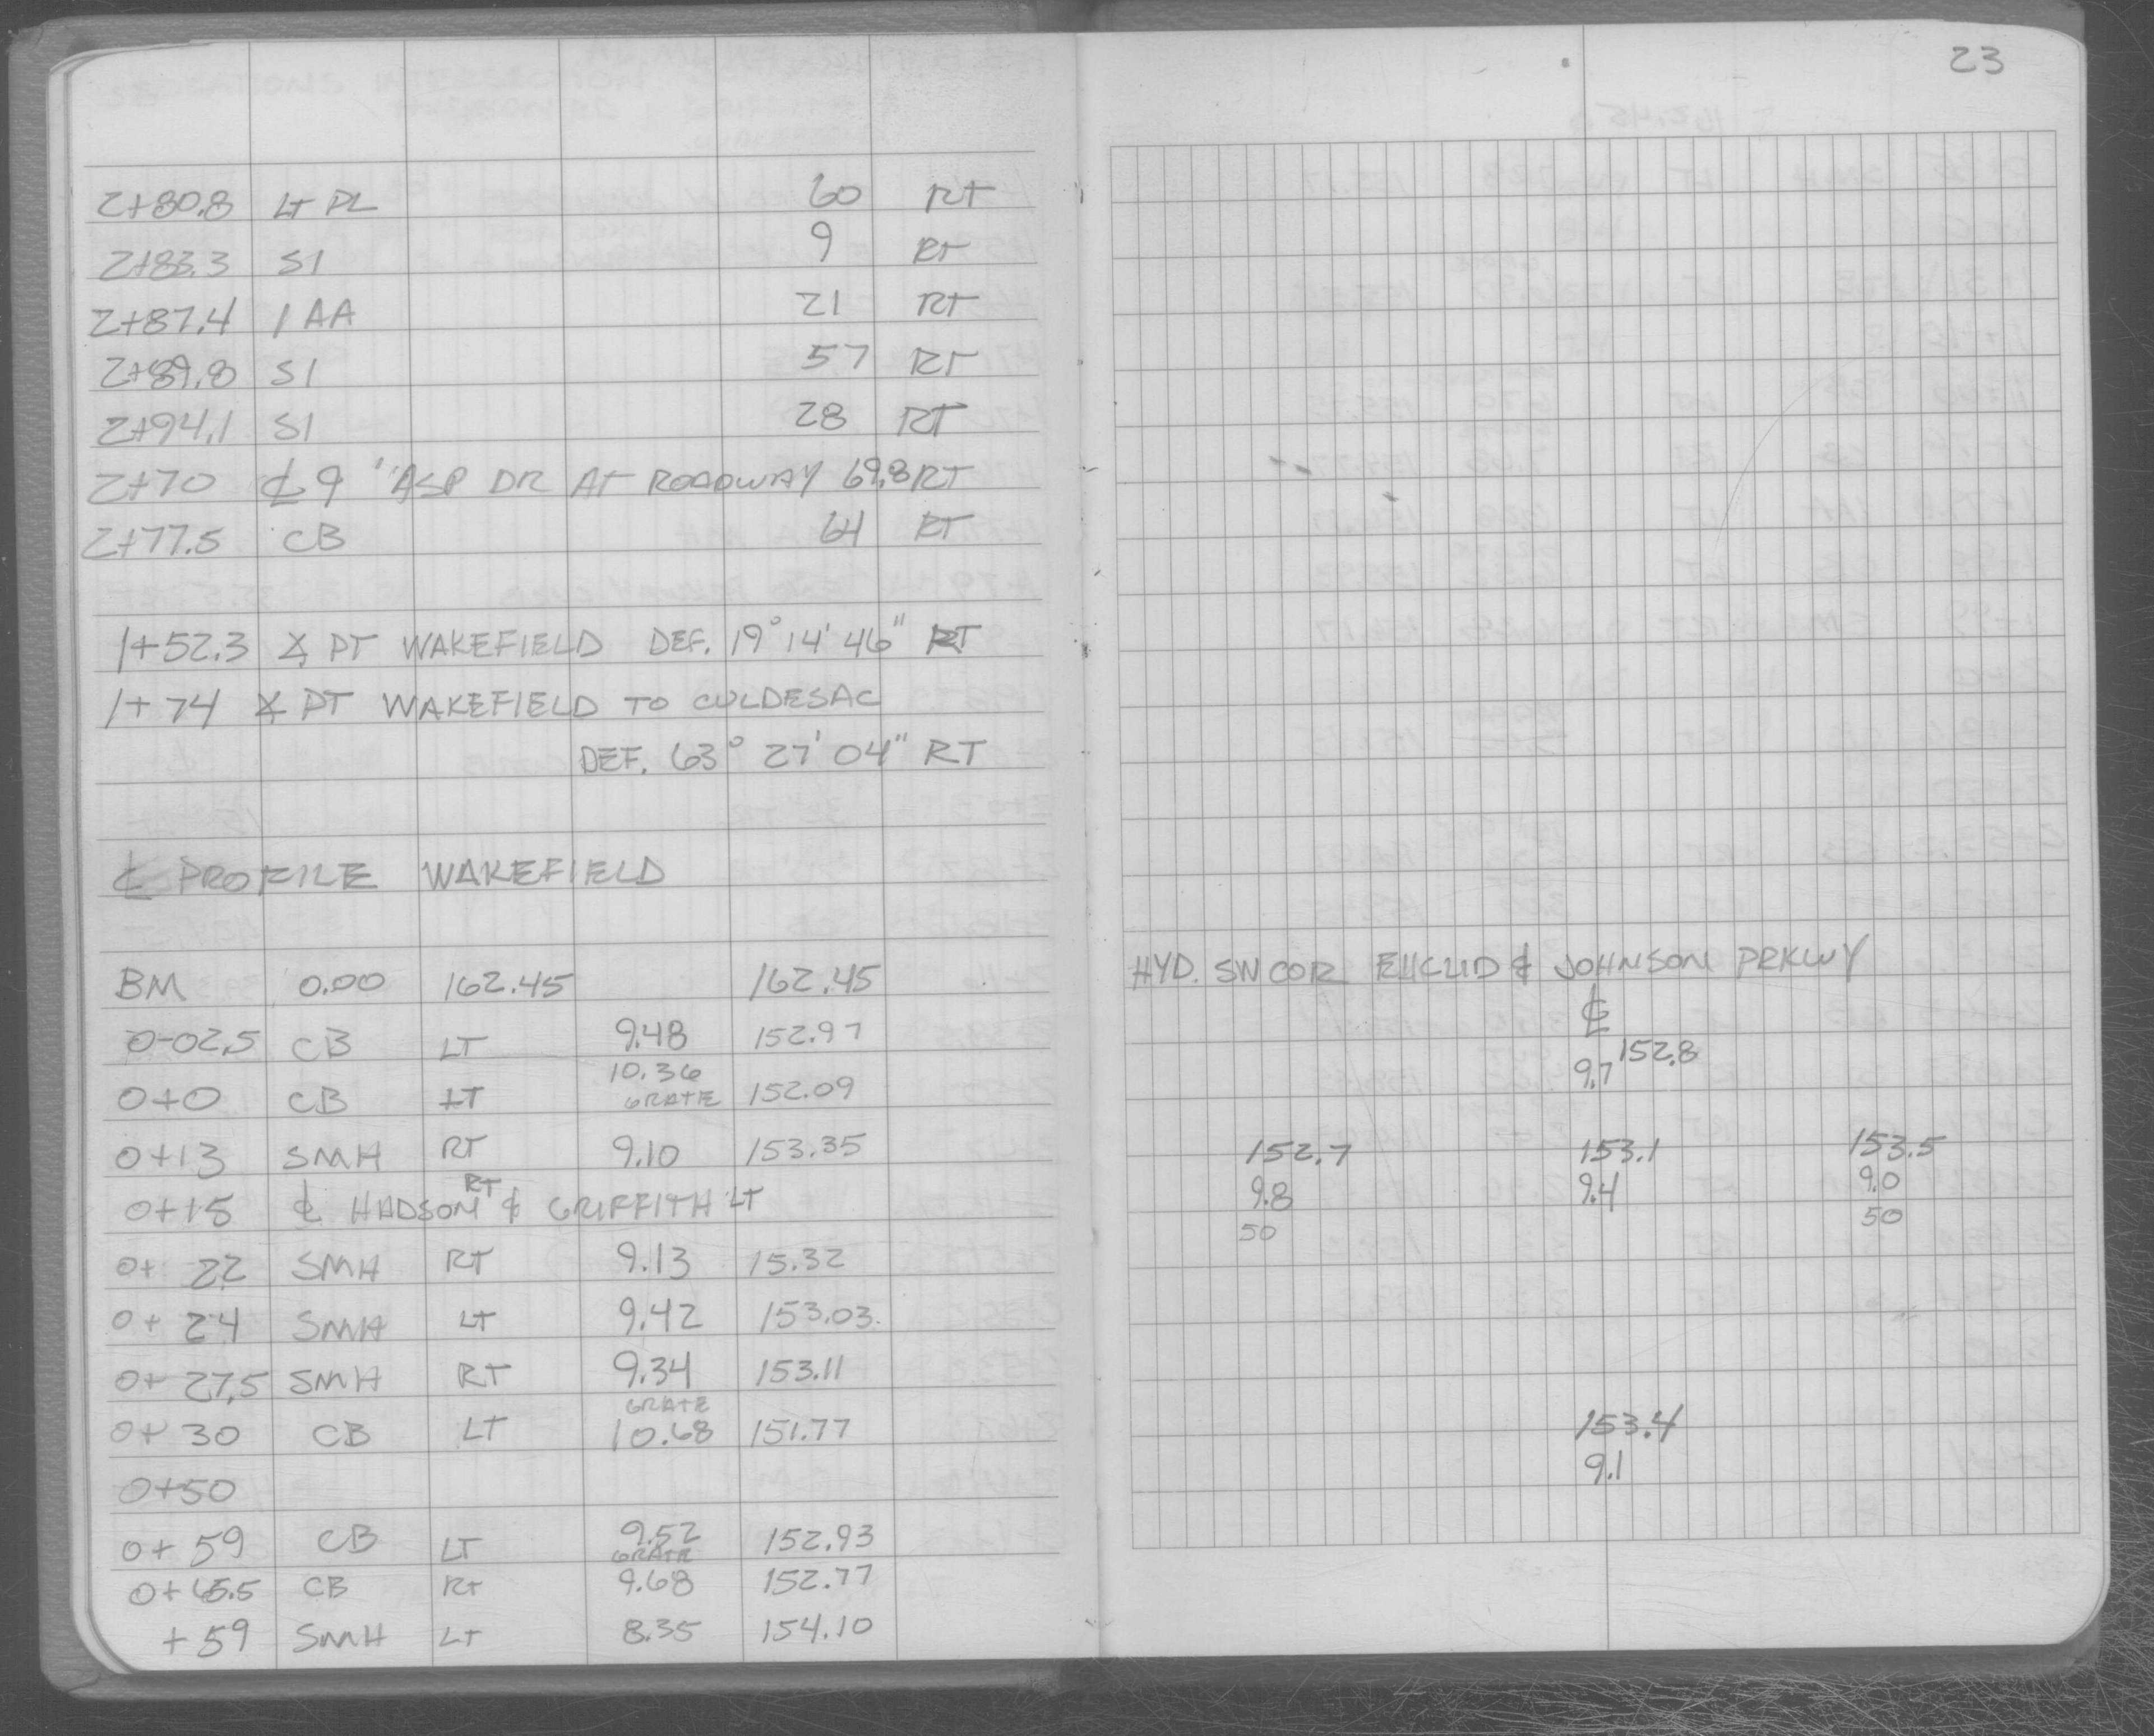 23
2+80.8 LT PL 60 RT
2+83.3 S1 9 RT
2+87.4 1 AA 21 RT
2+89.8 S1 57 RT
2+94.1 S1 28 RT
2+70 ℄ 9' "ASP DR AT ROADWAY 69.8 RT
2+77.5 CB 64 RT
1+52.3 ∡ PT WAKEFIELD DEF. 19° 14' 46" RT
1+74 ∡ PT WAKEFIELD TO CULDESAC
DEF. 63° 27' 04" RT
℄ PROFILE WAKEFIELD
BM 0.00 162.45 162.45 HYD. SW COR EUCLID & JOHNSON PRKWY
℄
0-02.5 CB LT 9.48 152.97
152.8
10.36
9.7
0+0 CB LT GRATE 152.09
0+13 SMH RT 9.10 153.35 152.7 153.1 153.5
RT 9.8 9.4 9.0
0+15 ℄ HUDSON & GRIFFITH LT
50 50
0+ 22 SMH RT 9.13 15.32
0+ 24 SMH LT 9.42 153.03
0+ 27.5 SMH RT 9.34 153.11
GRATE
0+ 30 CB LT 10.68 151.77 153.4
9.1
0+50
0+ 59 CB LT 9.52 152.93
GRATE
0+ CB RT 9.68 152.77
+59 SMH LT 8.35 154.10